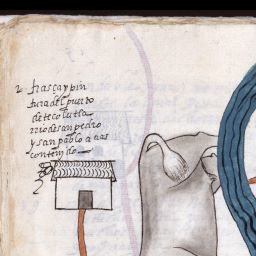 2 traça y pin
tura del puerto
de tecolutla
rrio de san pedro
y san pablo a cas
contenido